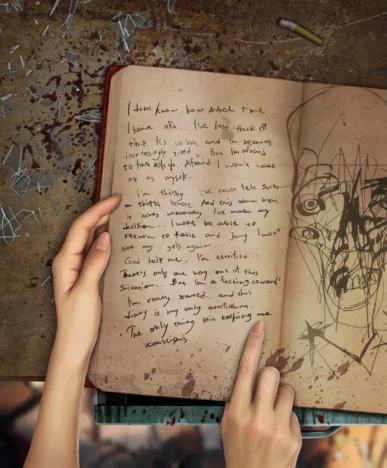 I don't know how much time
I have left... I've lost track of
time. It's so hot, and I'm becoming
increasingly tired. But I'm afraid
to fall asleep. Afraid I won't wake
up as myself.
I'm thirsty. I've never felt such
a thirst before. And this
is
unbearable. I've made my
decision... I won't be able to
return to Katie and Jony. I won't
see my girls again.
God help me, I'm terrified...
There's only one way out of this
situation... But I'm a fucking coward!
I'm really scared... and this
diary is my only
The only thing still keeping me
conscious